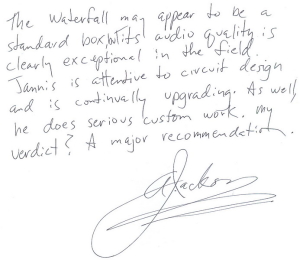 The Waterfall may appear to be a
standard box but its audio quality is
clearly exceptional in the field.
Jannis is attentive to circuit design
and is continually upgrading. As well,
he does serious custom work. My
verdict? A major recommendation.
AJackson